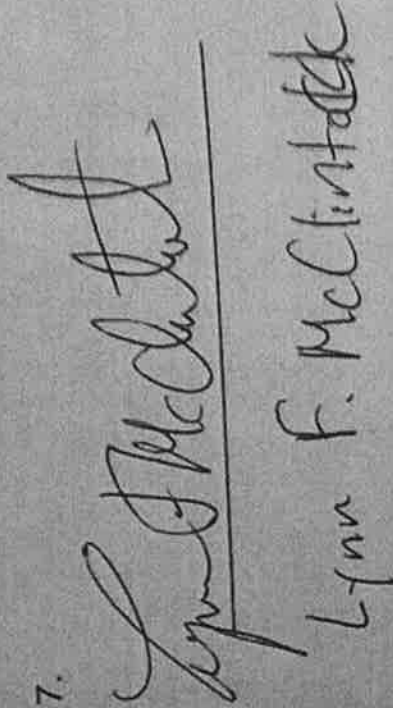 7.
Lynn F McClintock
Lynn F. McClintock